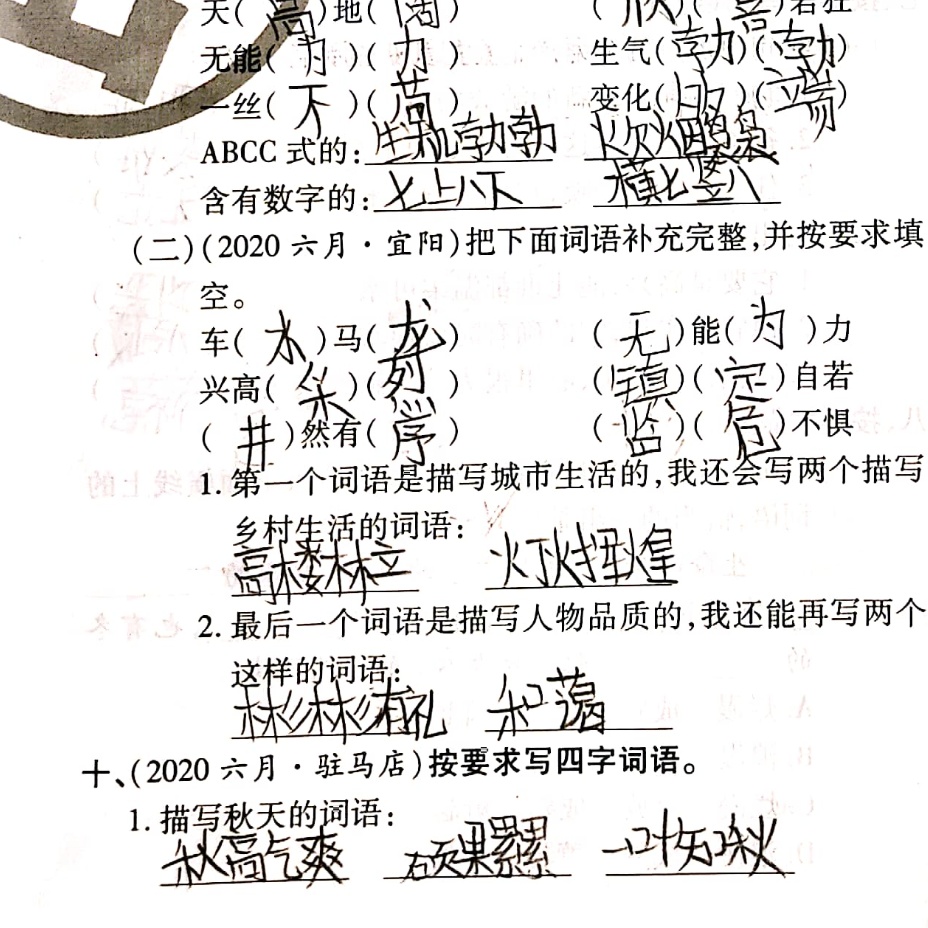 天(高)地(阔) (欣)(喜)若狂
无能(为)(力) 生气(勃)(勃)
一丝(不)(苟) 变化(多)(端)
ABCC 式的:生机勃勃
含有数字的:七上八下 横七竖八
(二)(2020 六月·宜阳)把下面词语补充完整,并按要求填
空。
车(水)马(龙) (无)能(为)力
兴高(采)(烈) (镇)(定)自若
(井)然有(序) (临)(危)不惧
1. 第一个词语是描写城市生活的,我还会写两个描写
乡村生活的词语:
高楼林立 灯火辉煌
2. 最后一个词语是描写人物品质的,我还能再写两个
这样的词语:
彬彬有礼 和蔼
十、(2020 六月·驻马店)按要求写四字词语。
1. 描写秋天的词语:
秋高气爽 硕果累累 一叶知秋